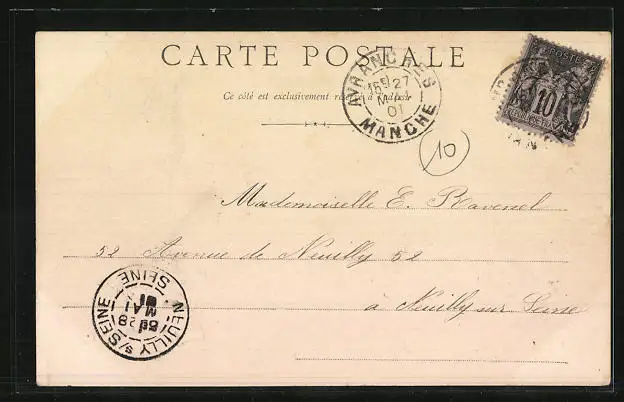 CARTE POSTALE
Ce côté est exclusivement réservé à l'adresse
AVRANCHES
27
MAI
01
MANCHE
POSTE
10
10
Mademoiselle E. Ravenel
52 Avenue de Neuilly 52
à Neuilly sur Seine
NEUILLY S/SEINE
28
MAI
01
SEINE